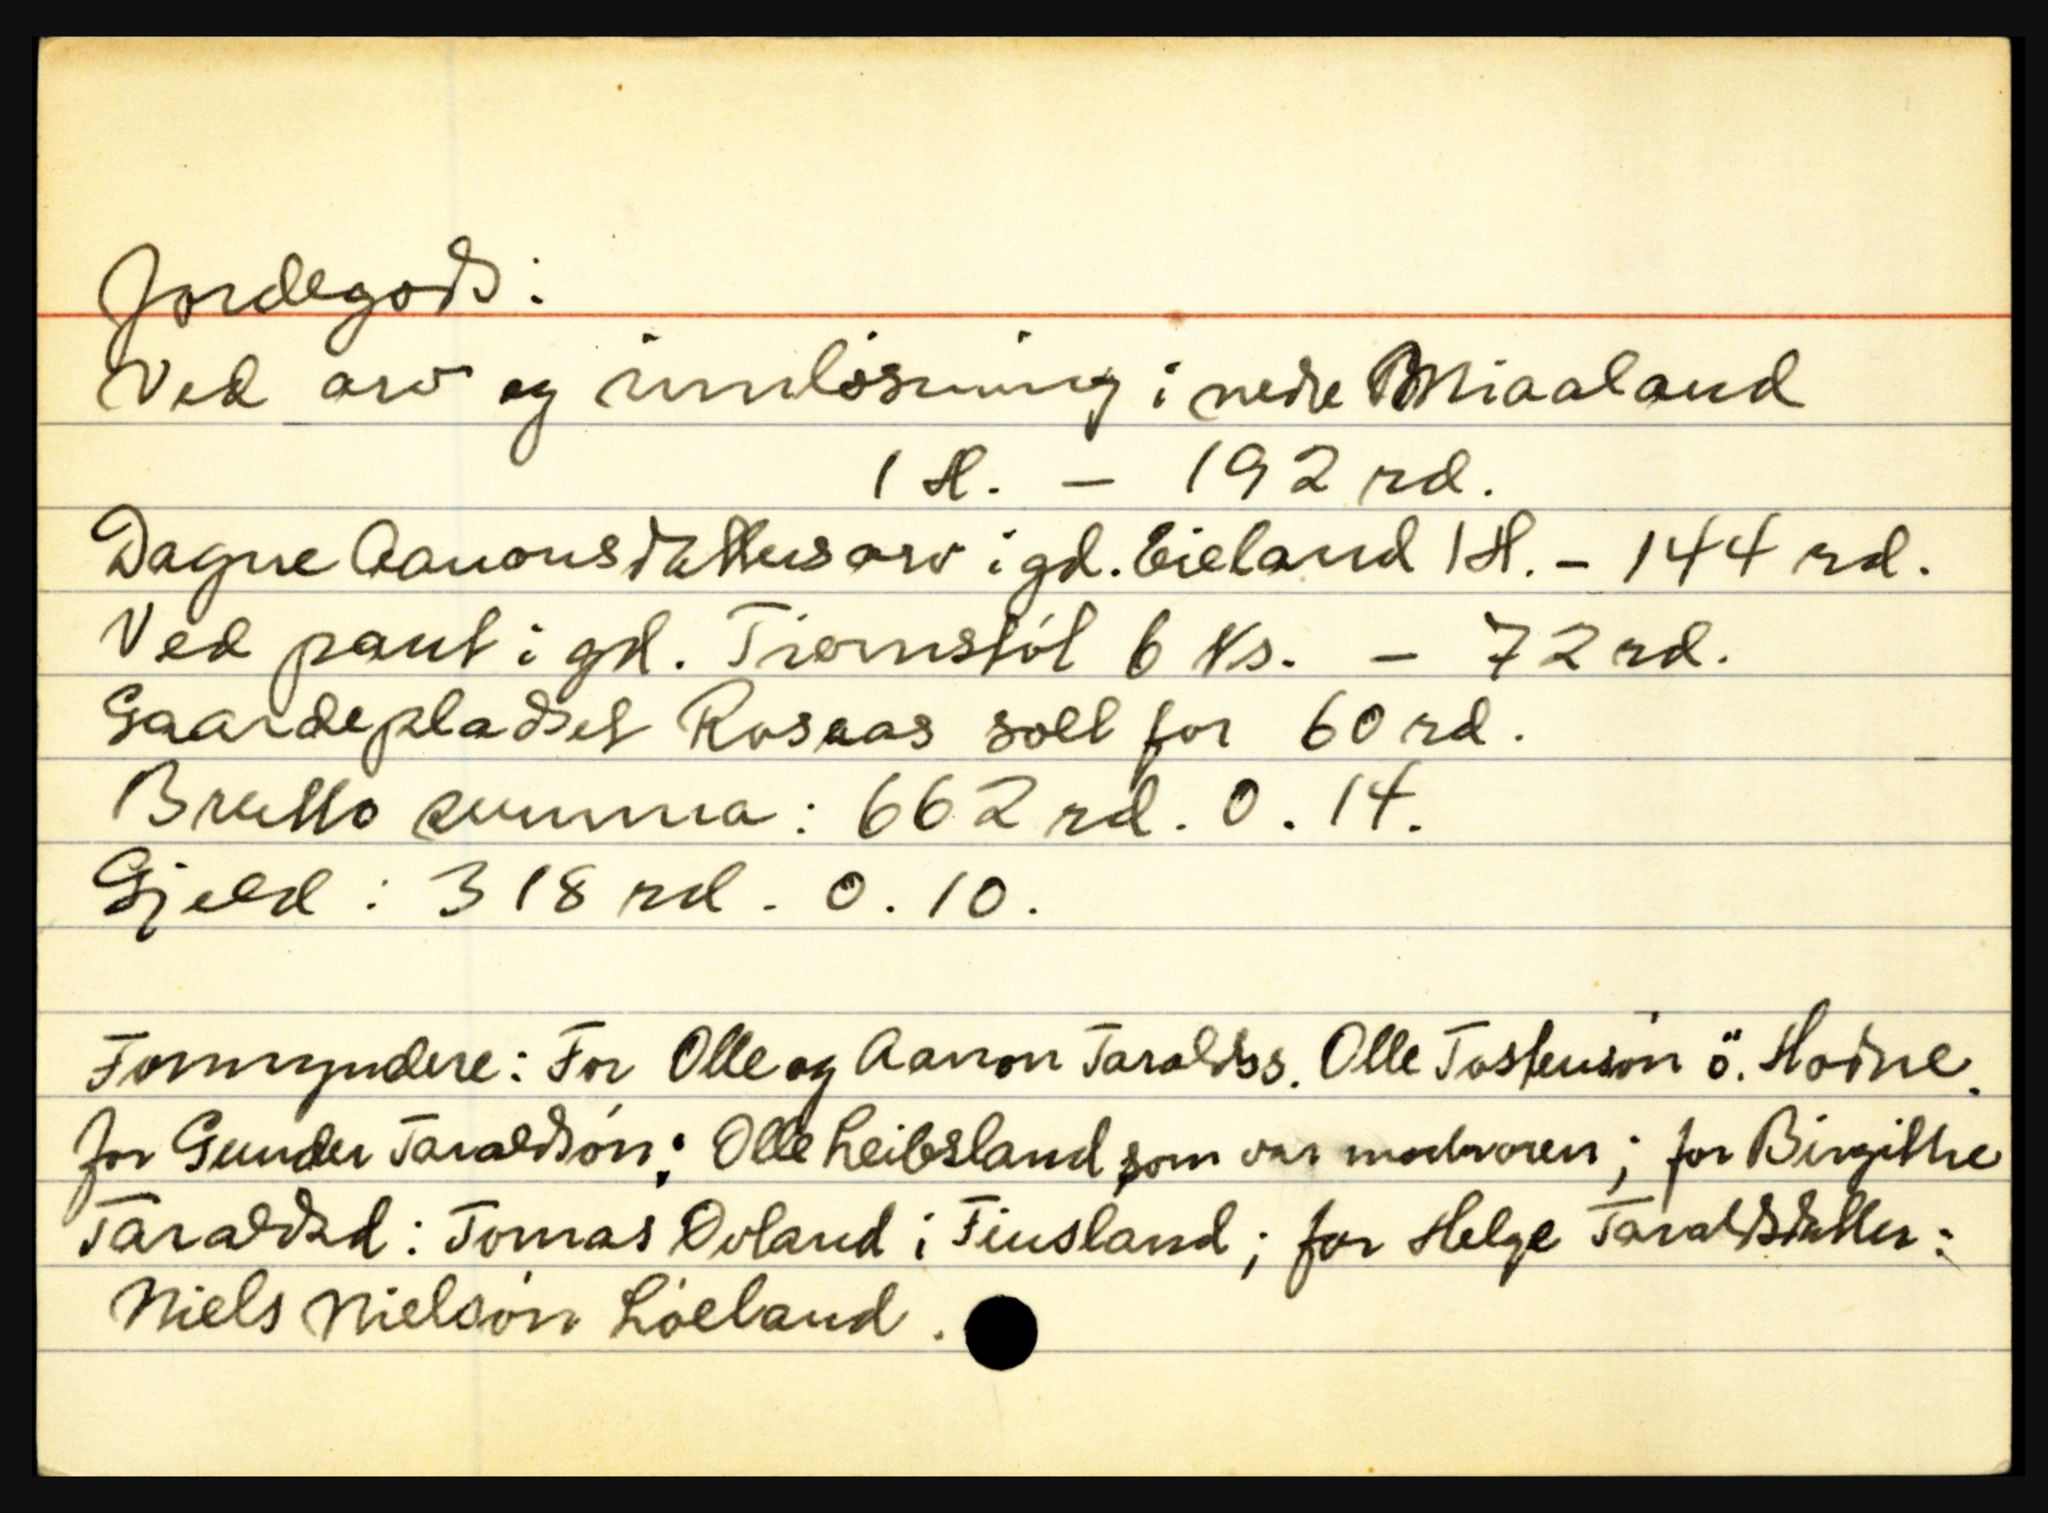 Jordegods:
Ved arv og innløsning i nedre Miaaland
1 H. - 192 rd.
Dagne Aanonsdatters arv i gd. Eieland 1 H. - 144 rd.
Ved pant i gd. Tiomstöl 6 Ks. - 72 rd.
Gaardepladset Rosaas solt for 60 rd.
Brutto summa: 662 rd. 0. 14.
Gjeld: 318 rd. 0. 10.
Formyndere: For Olle og Aanon Taraldss. Olle Tostensön ö. Hodne.
for Gunder Taraldsön: Olle Leibsland som var morbroren; for Birgithe
Taraldsd: Tomas Ovland i Finsland; for Helge Taraldsdatter:
Niels Nielsön Löeland.